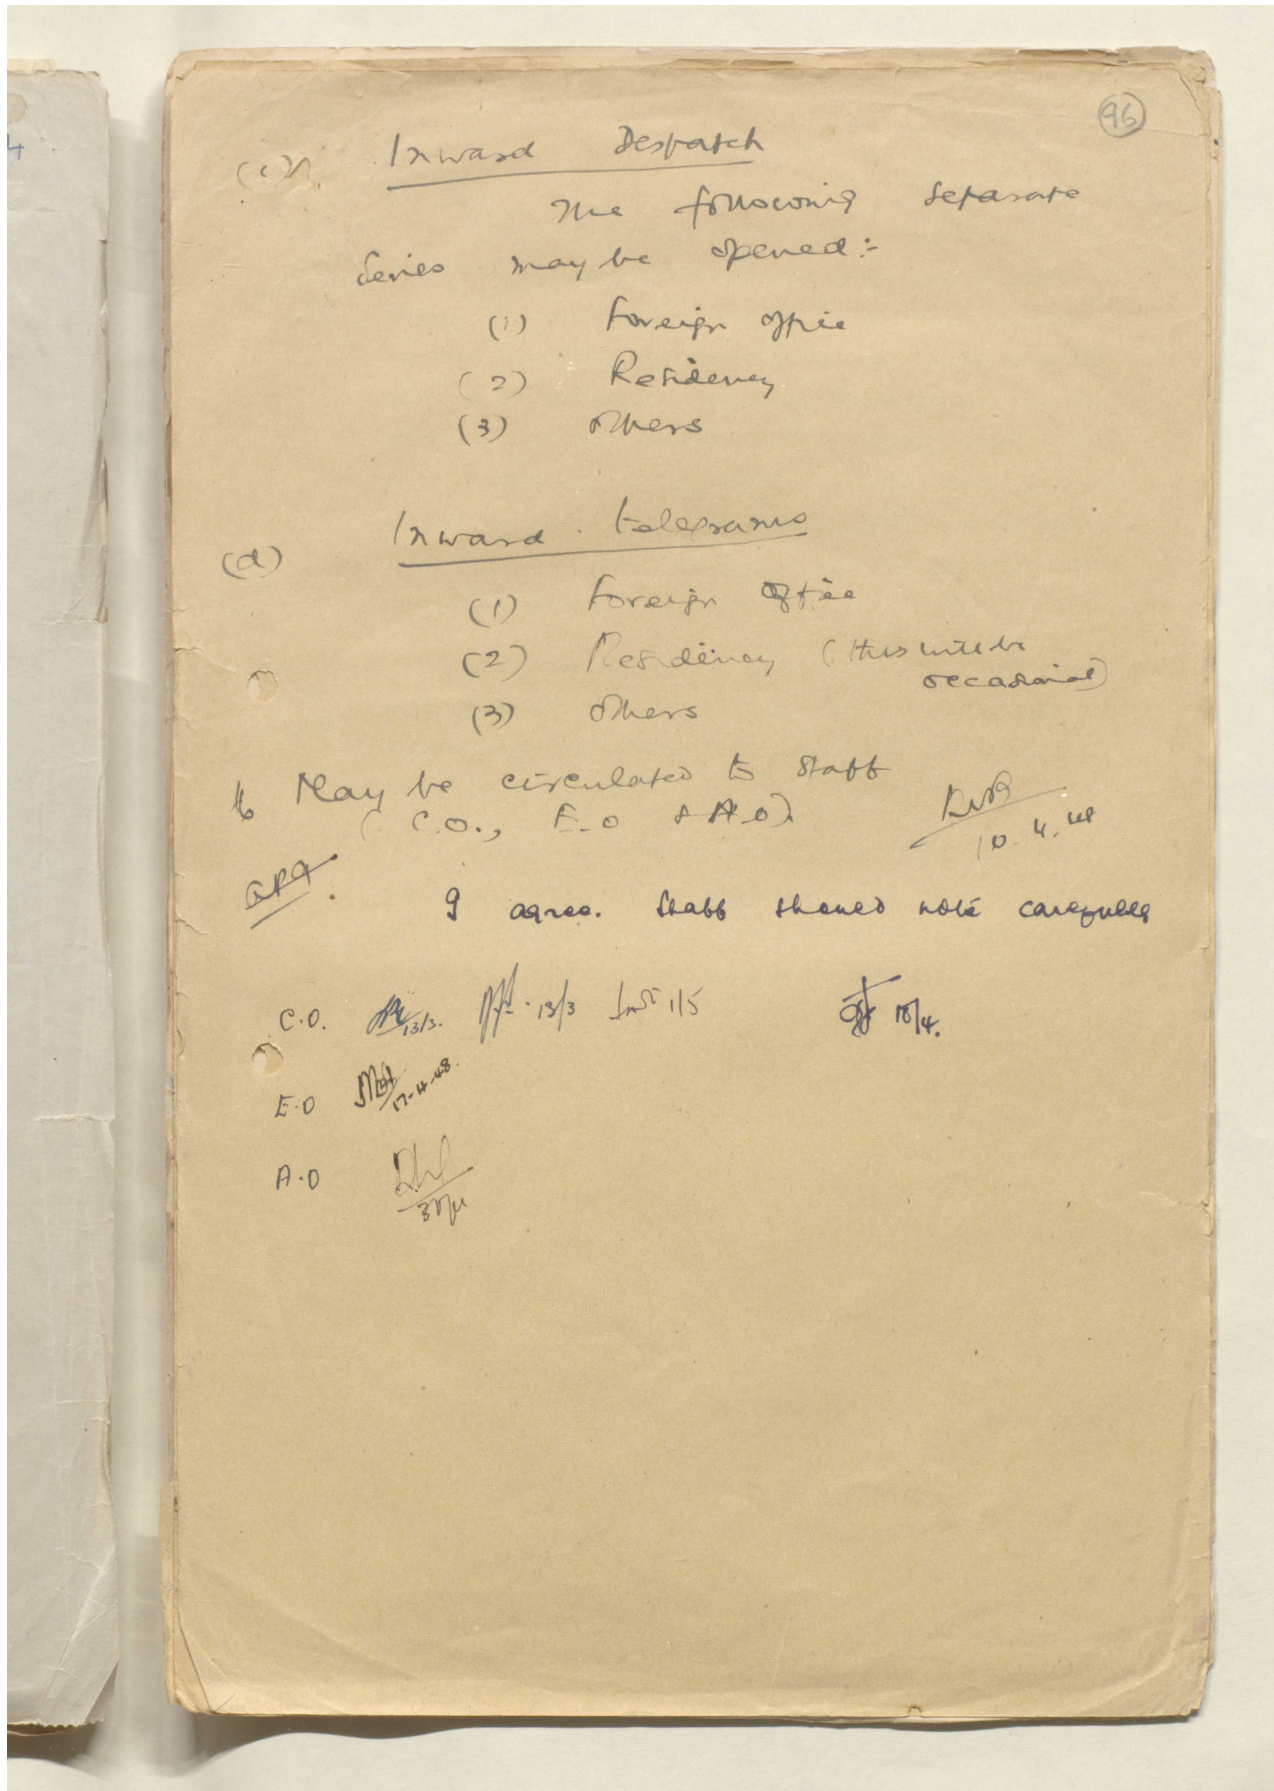 96
(c) Inward Despatch
The following separate
series may be opened:-
(1) Foreign office
(2) Residency
(3) others
(d) Inward telegrams
(1) Foreign Office
(2) Residency (this will be
occasional)
(3) others
May be circulated to staff
(C.O., E.O & A.O).
10.4.48
I agree. Staff should note carefully
C.O. 13/3. 13/3 1/5 10/4.
E.O 17-4-48.
A.O